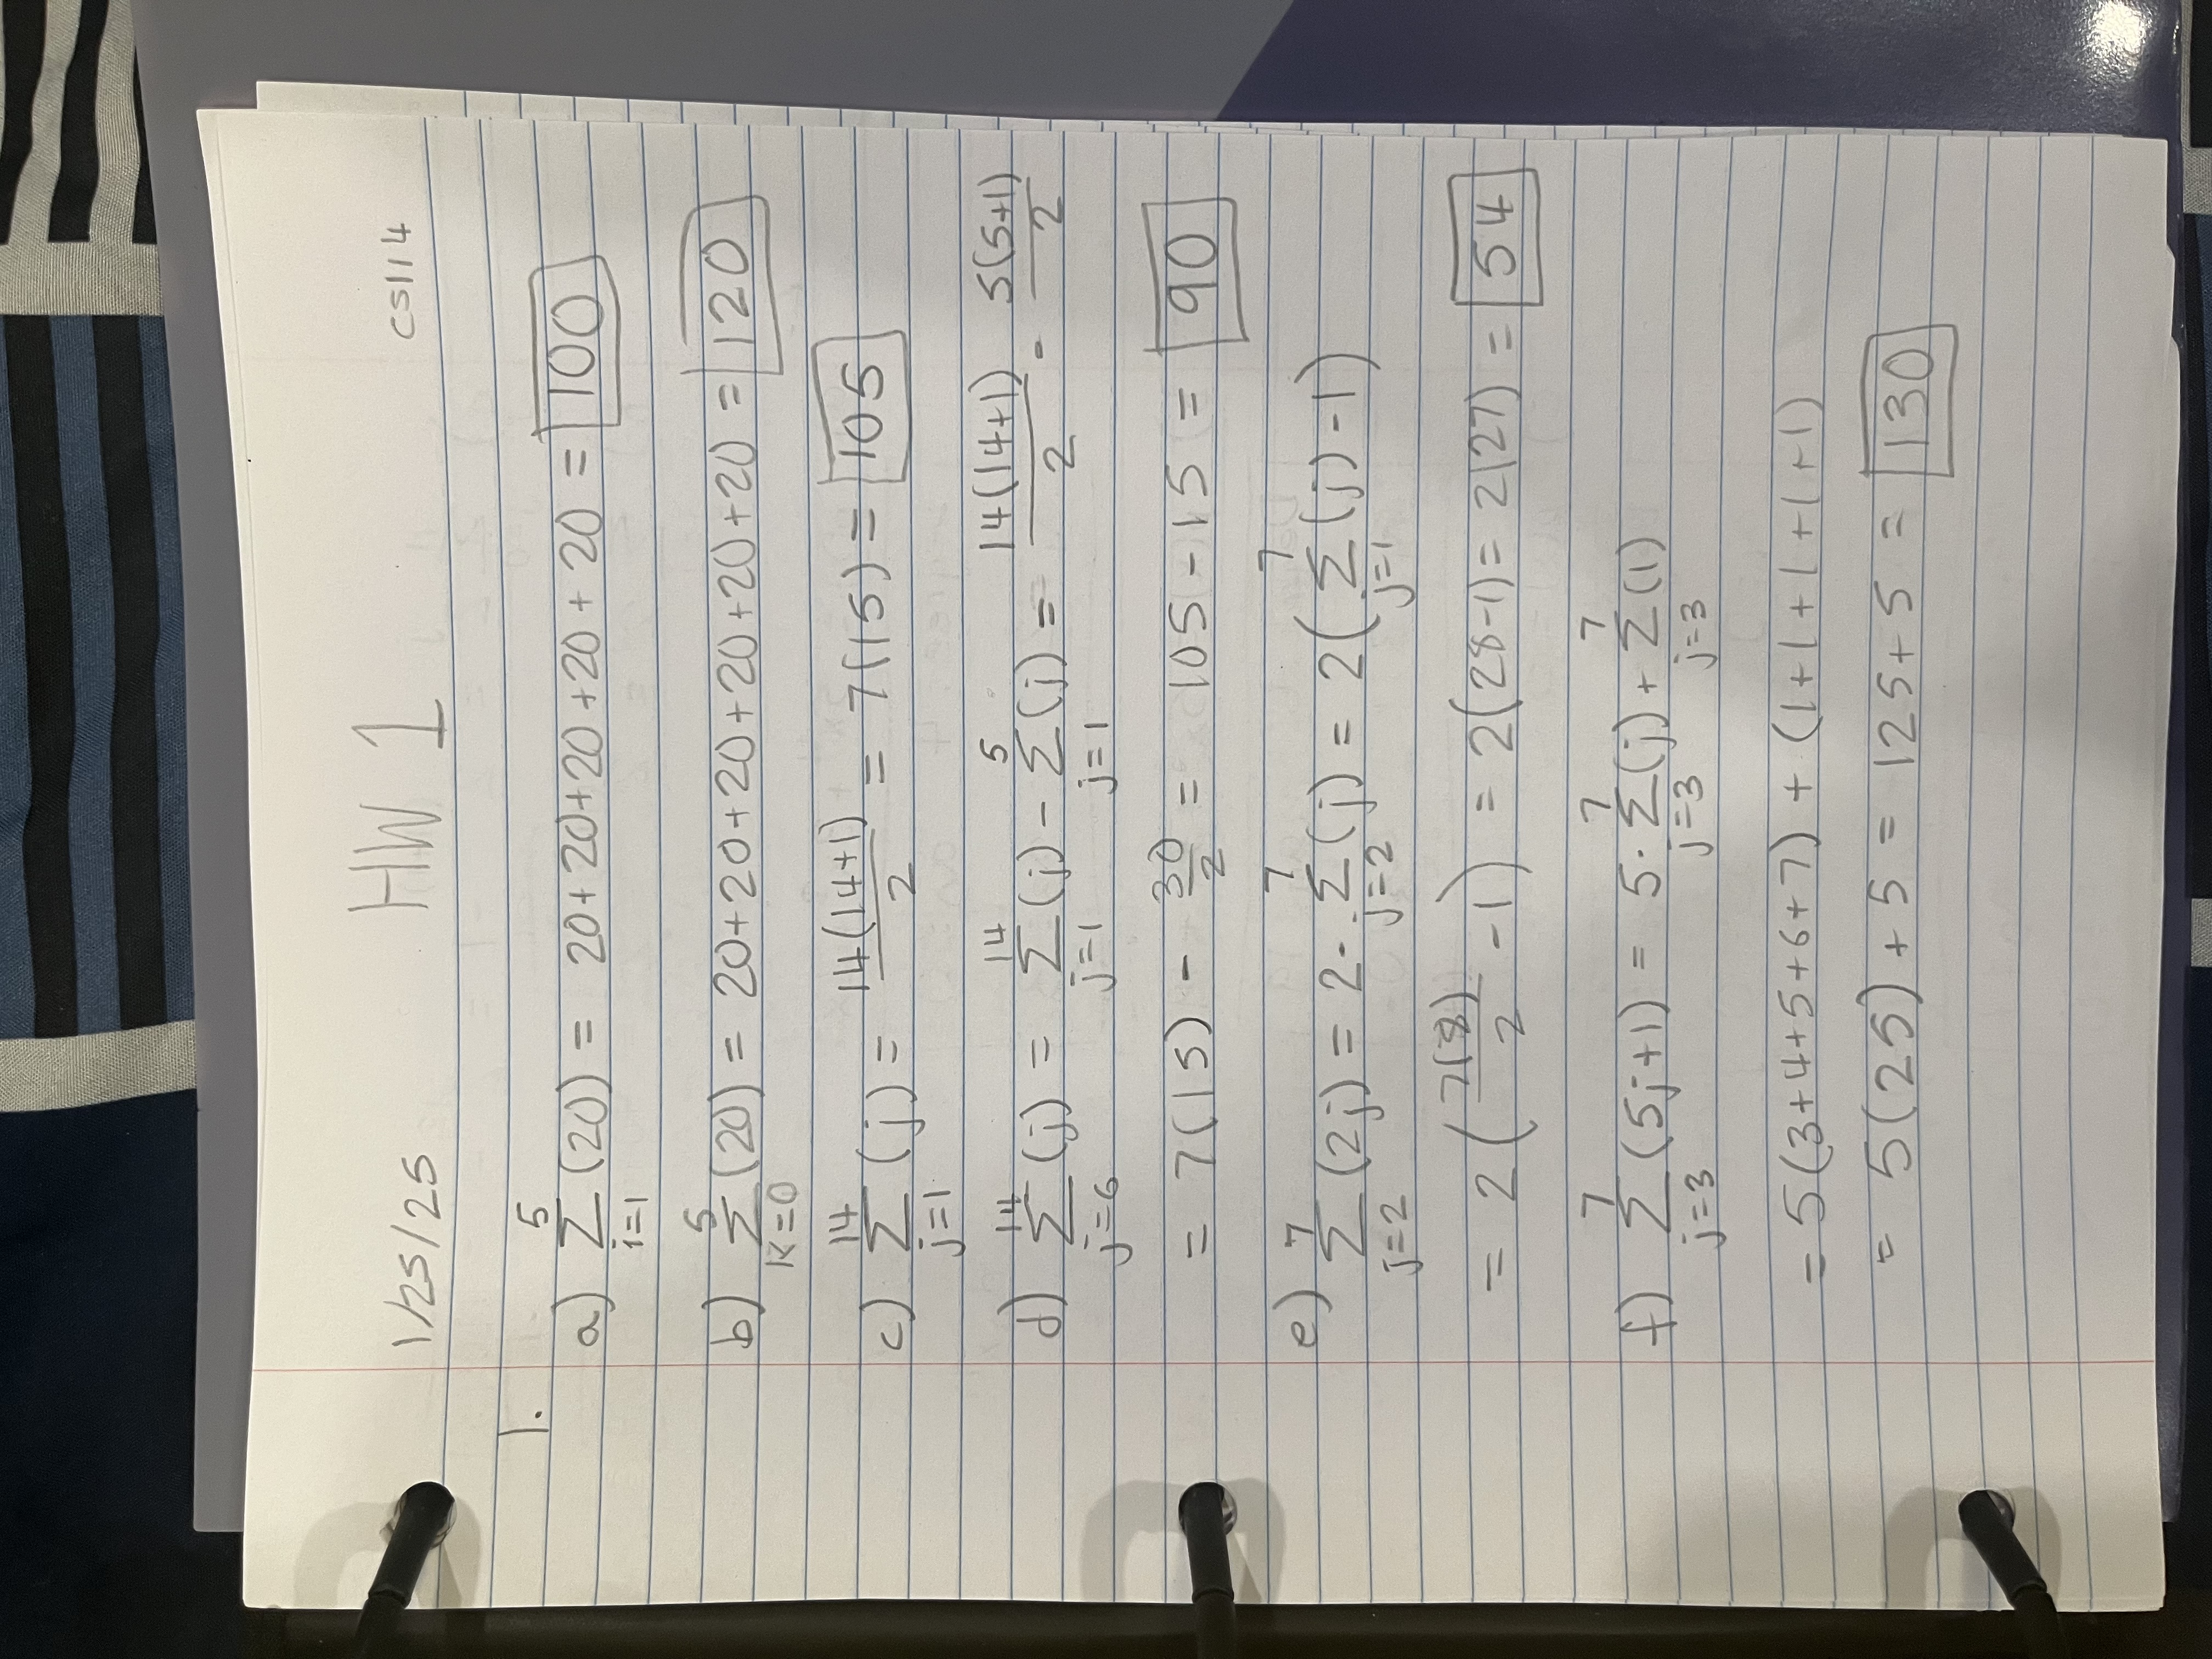 1/25/25 HW 1 CS114
1.
a) \sum_{i=1}^{5} (20) = 20+20+20+20+20 = 100
b) \sum_{k=0}^{5} (20) = 20+20+20+20+20+20 = 120
c) \sum_{j=1}^{14} (j) = \frac{14(14+1)}{2} = 7(15) = 105
d) \sum_{j=6}^{14} (j) = \sum_{j=1}^{14} (j) - \sum_{j=1}^{5} (j) = \frac{14(14+1)}{2} - \frac{5(5+1)}{2}
= 7(15) - \frac{30}{2} = 105 - 15 = 90
e) \sum_{j=2}^{7} (2j) = 2 \cdot \sum_{j=2}^{7} (j) = 2(\sum_{j=1}^{7} (j) - 1)
= 2(\frac{7(8)}{2} - 1) = 2(28-1) = 2(27) = 54
f) \sum_{j=3}^{7} (5j+1) = 5 \cdot \sum_{j=3}^{7} (j) + \sum_{j=3}^{7} (1)
= 5(3+4+5+6+7) + (1+1+1+1+1)
= 5(25) + 5 = 125 + 5 = 130